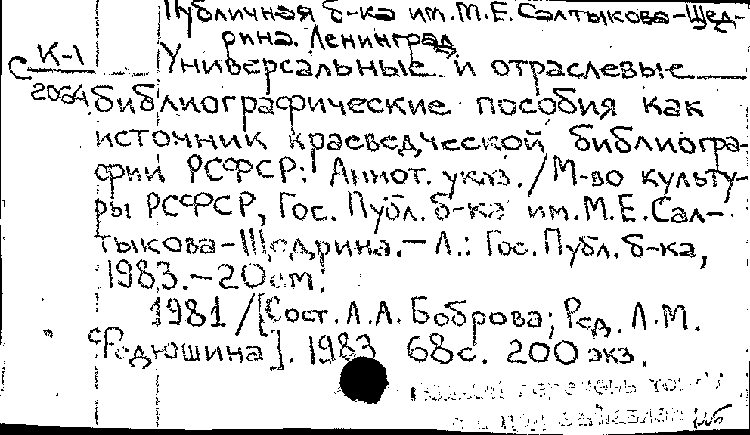 Публичная б-ка им. М.Е. Салтыкова-Щед-
рина. Ленинград
С К-1 Универсальные и отраслевые
2064 библиографические пособия как
источник краеведческой библиогра-
фии РСФСР: Аннот. указ. / М-во культу-
ры РСФСР, Гос. Публ. б-ка им. М.Е. Сал-
тыкова-Щедрина. – Л.: Гос. Публ. б-ка,
1983. – 20 см.
1981 / [Сост. Л.А. Боброва; Ред. Л.М.
Федюшина]. 1983 68 с. 200 экз.
перечень